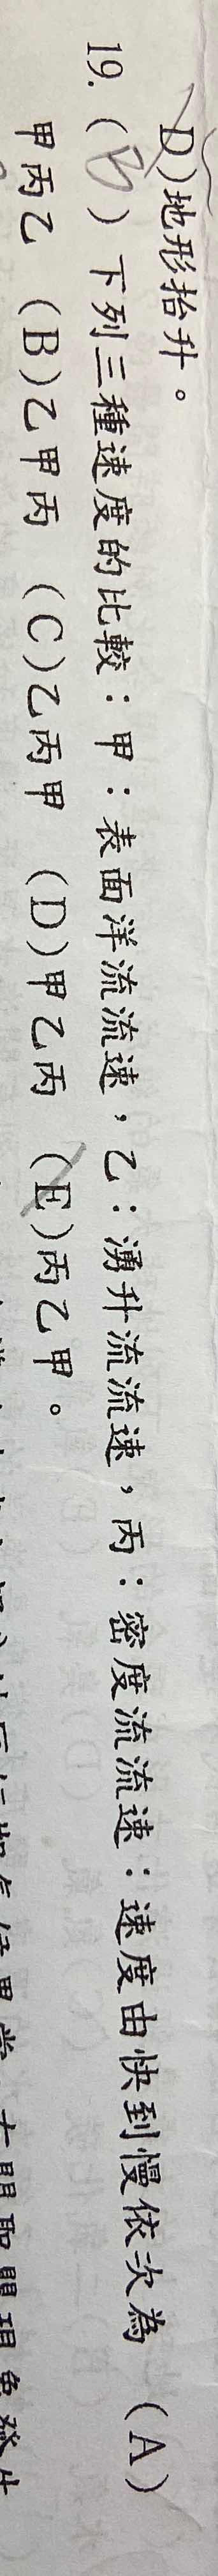 D)地形抬升。
19. ( B ) 下列三種速度的比較：甲：表面洋流流速，乙：湧升流流速，丙：密度流流速：速度由快到慢依次為 (A)
甲丙乙 (B)乙甲丙 (C)乙丙甲 (D)甲乙丙 (E)丙乙甲。